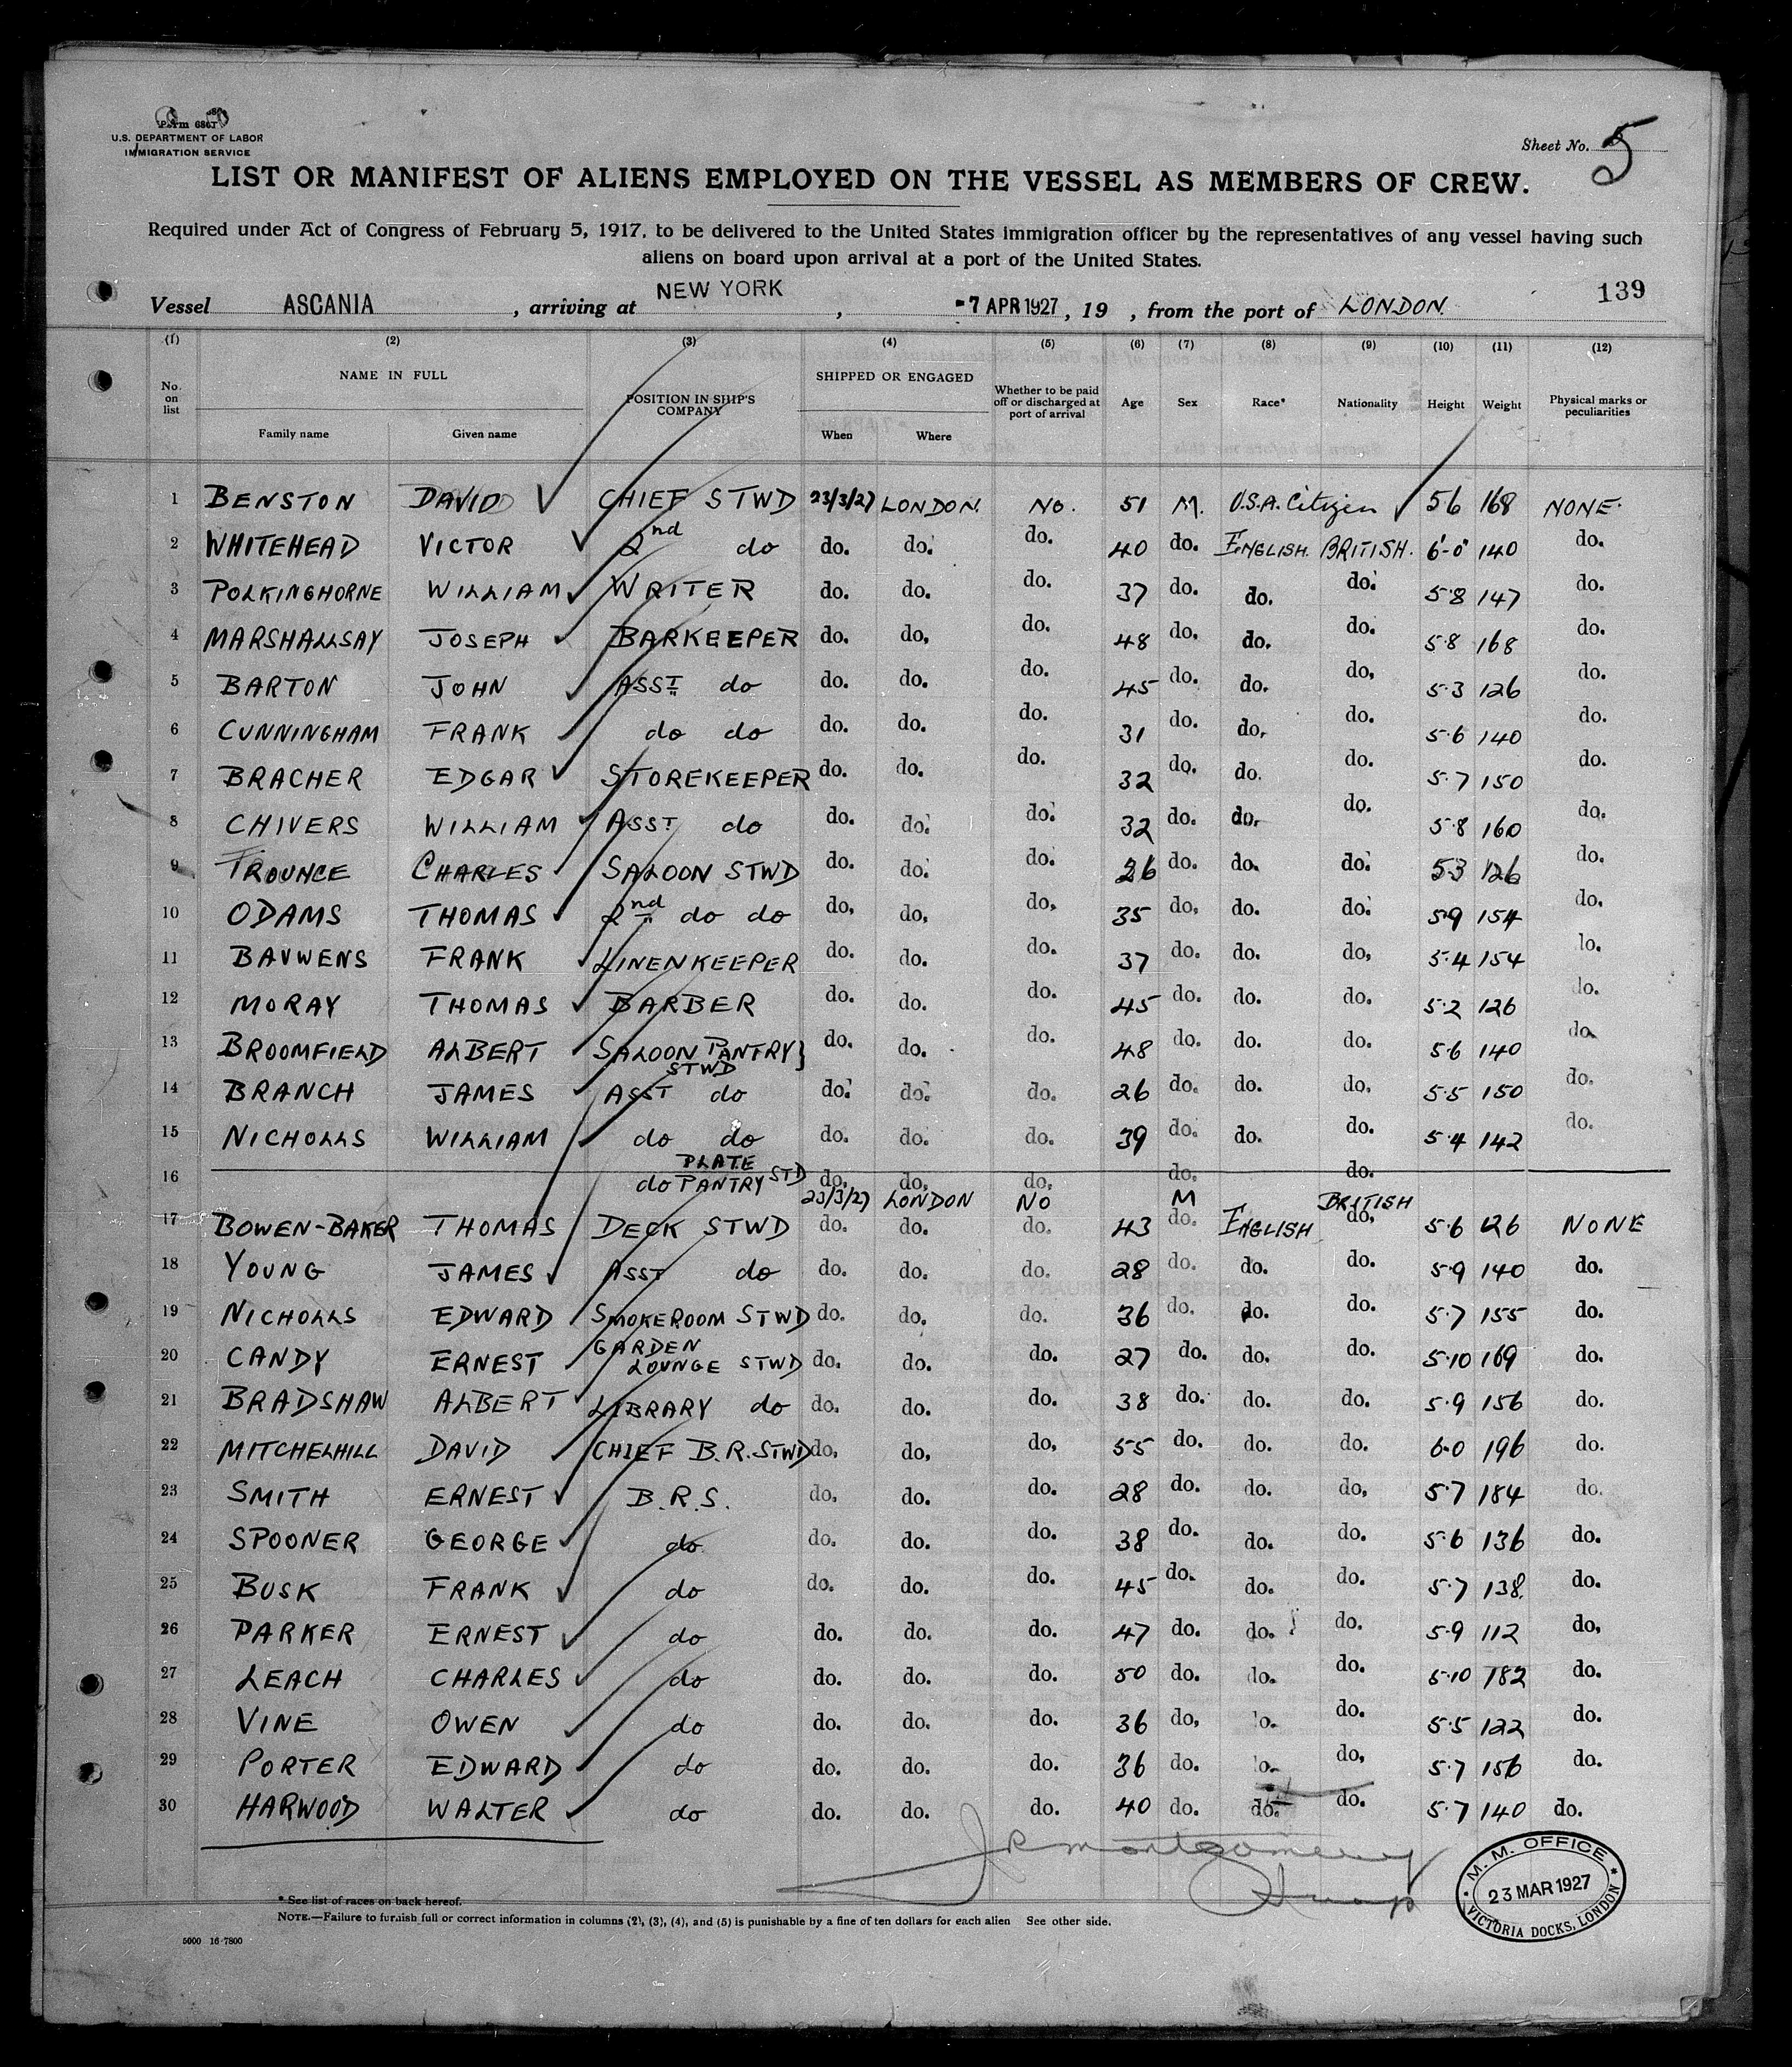 Form 680
U.S. DEPARTMENT OF LABOR
IMMIGRATION SERVICE
Sheet No. 5
LIST OR MANIFEST OF ALIENS EMPLOYED ON THE VESSEL AS MEMBERS OF CREW.
Required under Act of Congress of February 5, 1917, to be delivered to the United States immigration officer by the representatives of any vessel having such
aliens on board upon arrival at a port of the United States.
139
Vessel ASCANIA, arriving at NEW YORK, -7 APR 1927, 19 , from the port of LONDON.
(1) (2) (3) (4) (5) (6) (7) (8) (9) (10) (11) (12)
No. on list NAME IN FULL Family name Given name POSITION IN SHIP'S COMPANY SHIPPED OR ENGAGED When Where Whether to be paid off or discharged at port of arrival Age Sex Race* Nationality Height Weight Physical marks or peculiarities
1 BENSTON DAVID CHIEF STWD 23/3/27 LONDON. No. 51 M. U.S.A. Citizen 5.6 168 NONE.
2 WHITEHEAD VICTOR 2nd do do. do. do. 40 do. ENGLISH. BRITISH. 6'-0" 140 do.
3 POLKINGHORNE WILLIAM WRITER do. do. do. 37 do. do. do. 5.8 147 do.
4 MARSHALLSAY JOSEPH BARKEEPER do. do. do. 48 do. do. do. 5.8 168 do.
5 BARTON JOHN ASST do do. do. do. 45 do. do. do. 5.3 126 do.
6 CUNNINGHAM FRANK do do do. do. do. 31 do. do. do. 5.6 140 do.
7 BRACHER EDGAR STOREKEEPER do. do. do. 32 do. do. do. 5.7 150 do.
8 CHIVERS WILLIAM ASST do do. do. do. 32 do. do. do. 5.8 160 do.
9 TROUNCE CHARLES SALOON STWD do. do. do. 26 do. do. do. 5.3 126 do.
10 ODAMS THOMAS 2nd do do do. do. do. 35 do. do. do. 5.9 154 do.
11 BAUWENS FRANK LINENKEEPER do. do. do. 37 do. do. do. 5.4 154 do.
12 MORAY THOMAS BARBER do. do. do. 45 do. do. do. 5.2 126 do.
13 BROOMFIELD ALBERT SALOON PANTRY} STWD do. do. do. 48 do. do. do. 5.6 140 do.
14 BRANCH JAMES ASST do do. do. do. 26 do. do. do. 5.5 150 do.
15 NICHOLLS WILLIAM do do do. do. do. 39 do. do. do. 5.4 142 do.
16 do PLATE PANTRY STD do. do. do. do. do.
23/3/27 LONDON NO M BRITISH
17 BOWEN-BAKER THOMAS DECK STWD do. do. do. 43 do. ENGLISH do. 5.6 126 NONE
18 YOUNG JAMES ASST do do. do. do. 28 do. do. do. 5.9 140 do.
19 NICHOLLS EDWARD SMOKEROOM STWD do. do. do. 36 do. do. do. 5.7 155 do.
20 CANDY ERNEST GARDEN LOUNGE STWD do. do. do. 27 do. do. do. 5.10 169 do.
21 BRADSHAW ALBERT LIBRARY do do. do. do. 38 do. do. do. 5.9 156 do.
22 MITCHELHILL DAVID CHIEF B.R. STWD do. do. do. 55 do. do. do. 6.0 196 do.
23 SMITH ERNEST B.R.S. do. do. do. 28 do. do. do. 5.7 184 do.
24 SPOONER GEORGE do do. do. do. 38 do. do. do. 5.6 136 do.
25 BUSK FRANK do do. do. do. 45 do. do. do. 5.7 138. do.
26 PARKER ERNEST do do. do. do. 47 do. do. do. 5.9 112 do.
27 LEACH CHARLES do do. do. do. 50 do. do. do. 5.10 182 do.
28 VINE OWEN do do. do. do. 36 do. do. do. 5.5 122 do.
29 PORTER EDWARD do do. do. do. 36 do. do. do. 5.7 156 do.
30 HARWOOD WALTER do do. do. do. 40 do. do. do. 5.7 140 do.
Montgomery
M. M. OFFICE
23 MAR 1927
VICTORIA DOCKS, LONDON
* See list of races on back hereof.
NOTE.—Failure to furnish full or correct information in columns (2), (3), (4), and (5) is punishable by a fine of ten dollars for each alien See other side.
5000 16-7800